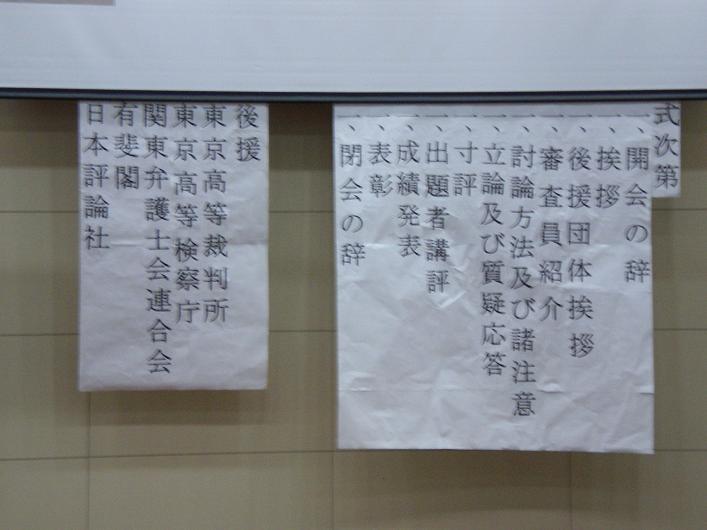 式次第
一、開会の辞
一、挨拶
一、後援団体挨拶
一、審査員紹介
一、討論方法及び諸注意
一、立論及び質疑応答
一、寸評
一、出題者講評
一、成績発表
一、表彰
一、閉会の辞
後援
東京高等裁判所
東京高等検察庁
関東弁護士会連合会
有斐閣
日本評論社